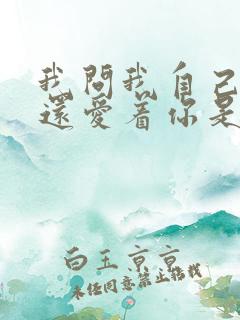 我問我自己
還愛着你是
白玉京京
未经同意禁止转载